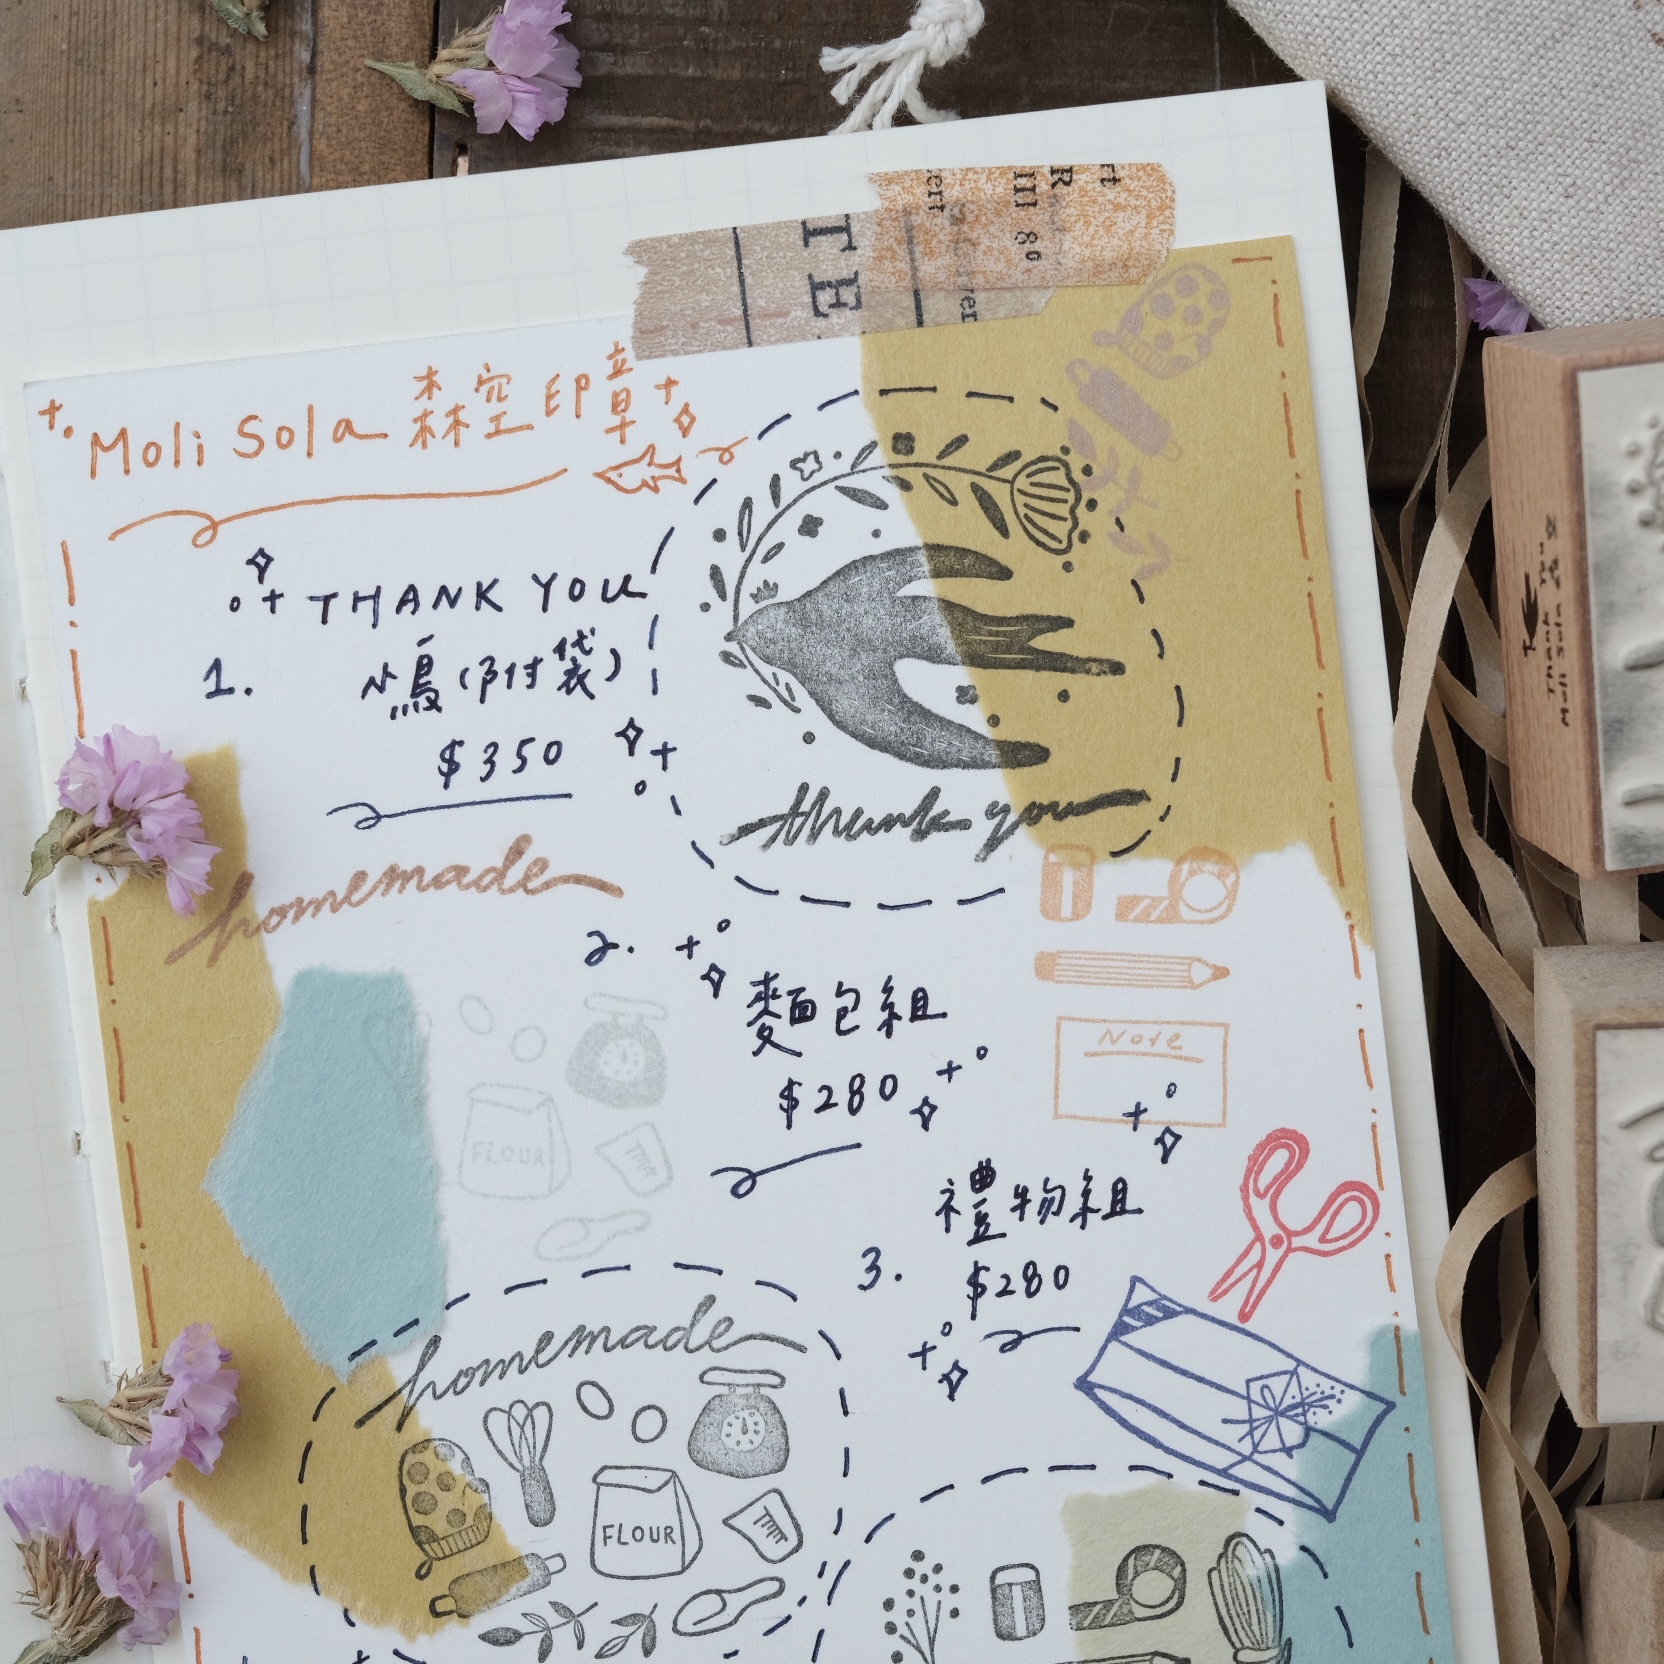 TE
Moli Sola 森空印章
THANK YOU
1. 小鳥(附袋)
$350
thank you
homemade
2. 麵包組
$280
Note
FLOUR
禮物組
3. $280
homemade
FLOUR
Thank You
Moli Sola